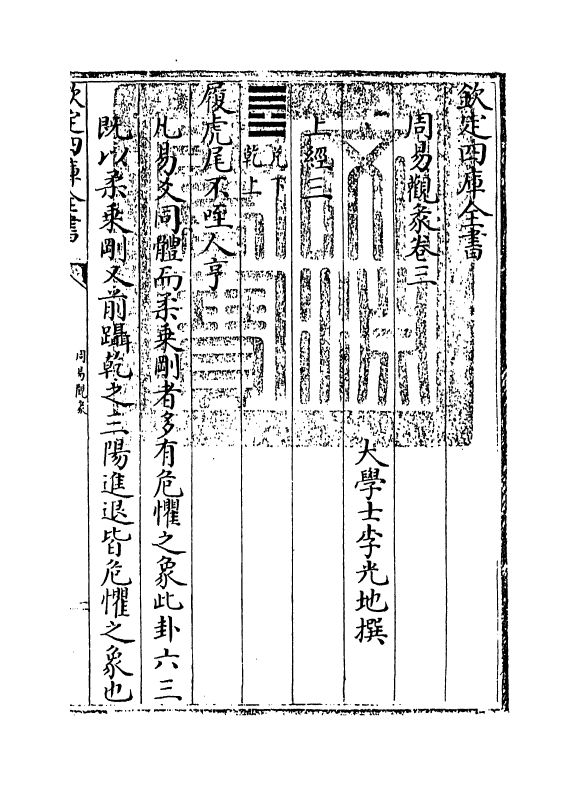 欽定四庫全書
周易觀彖卷三
大學士李光地撰
上經三
兌下
乾上
履虎尾不咥人亨
凡易爻同體而柔乘剛者多有危懼之象此卦六三
既以柔乘剛又前躡乾之三陽進退皆危懼之象也
欽定四庫全書
周易觀彖